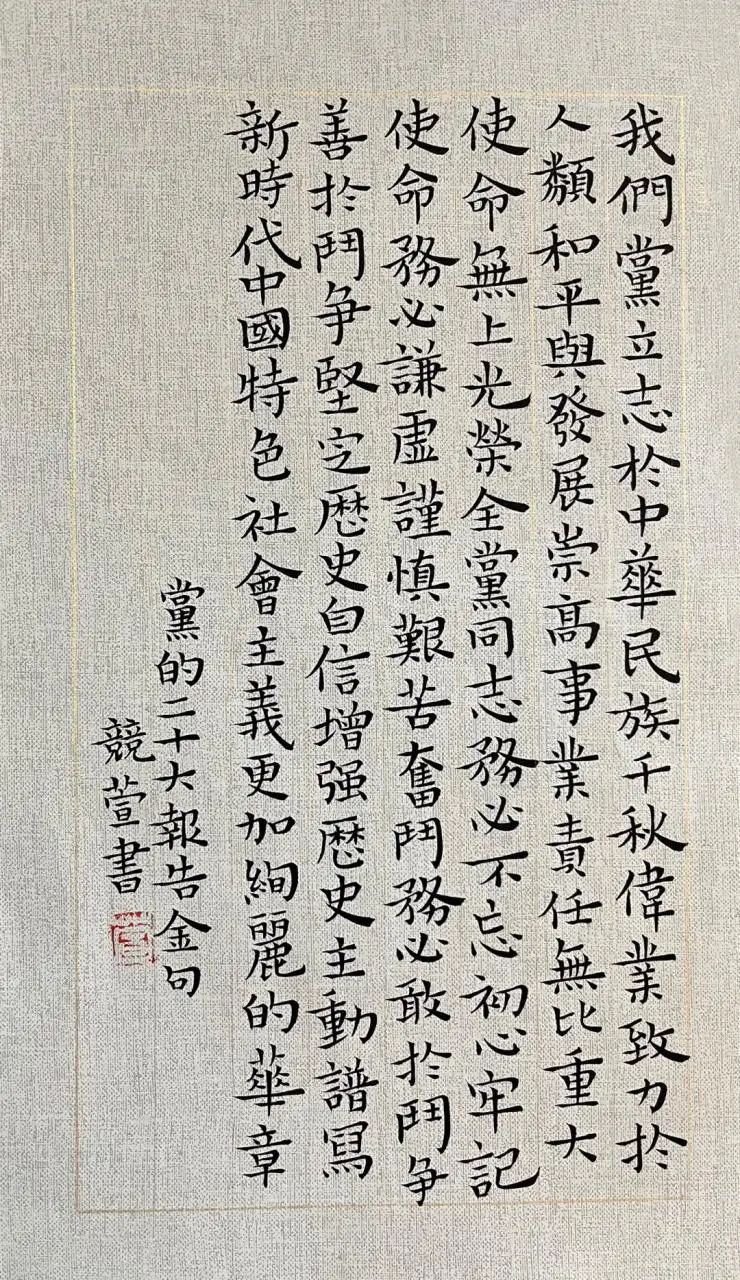 我們黨立志於中華民族千秋偉業致力於
人類和平與發展崇高事業責任無比重大
使命無上光榮全黨同志務必不忘初心牢記
使命務必謙虛謹慎艱苦奮鬥務必敢於鬥爭
善於鬥爭堅定歷史自信增强歷史主動譜寫
新時代中國特色社會主義更加絢麗的華章
黨的二十大報告金句
競萱書